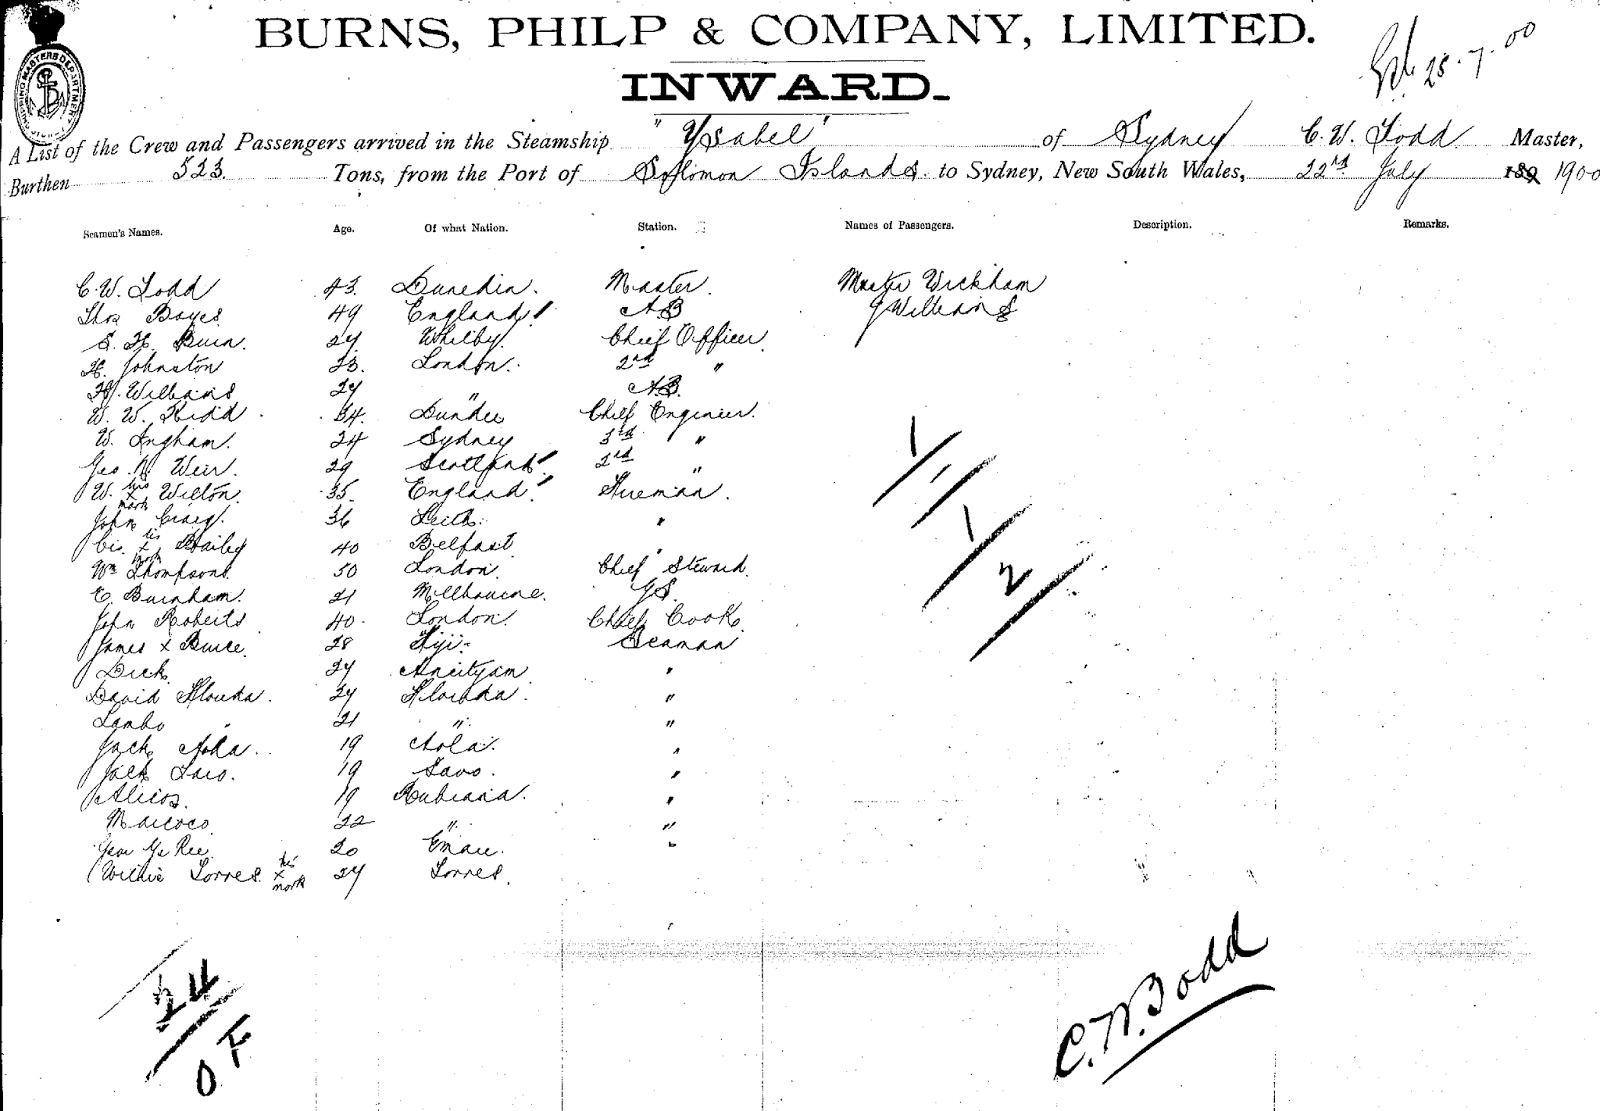 BURNS, PHILP & COMPANY, LIMITED.
INWARD.
25.7.00
A List of the Crew and Passengers arrived in the Steamship "Ysabel" of Sydney C. W. Todd Master,
Burthen 523 Tons, from the Port of Solomon Islands to Sydney, New South Wales, 22nd July 189 1900
Seamen's Names. Age. Of what Nation. Station. Names of Passengers. Description. Remarks.
C. W. Todd 43. Dunedin. Master. Master Wickham
Thos Boyes 49 England AB J Williams
S. H. Burn. 27 Whitby. Chief Officer
H. Johnston 23. London. 2nd "
H. Williams 27 " A.B.
W. W. Kidd 34. Dundee Chief Engineer.
W. Ingham. 24 Sydney 3rd "
Geo. Weir. 29 Scotland 2nd "
W. his x mark Wilton. 35. England Fireman.
John Craig. 36 Leith. "
his x mark Bailey 40 Belfast "
Wm Thompson. 50 London. Chief Steward.
E. Burnham. 21 Melbourne. GS.
John Roberts 40. London. Chief Cook
James x Bruce. 28 Fiji. Seaman
Dick. 27 Aneityum "
David Florida. 27 Florida. "
Lambo " 21 " "
Jack Aola. 19 Aola. "
Jack Savo. 19 Savo. "
19 Rubiana. "
Maroco. 22 " "
20 Emau. "
Willie Torres his x mark 27 Torres.
1/1/1/2
24/
O F
C. W. Todd